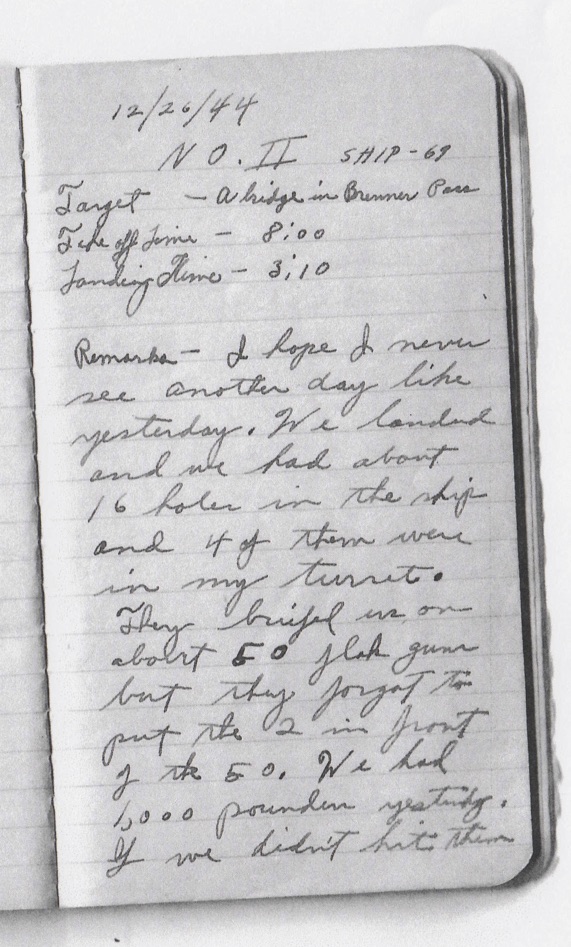 12/26/44
NO. II SHIP-69
Target - A bridge in Brenner Pass
Take off Time - 8:00
Landing Time - 3:10
Remarks - I hope I never
see another day like
yesterday. We landed
and we had about
16 holes in the ship
and 4 of them were
in my turret.
They briefed us on
about 50 flak guns
but they forgot to
put the 2 in front
of the 50. We had
1,000 pounders yesterday.
If we didn't hit them